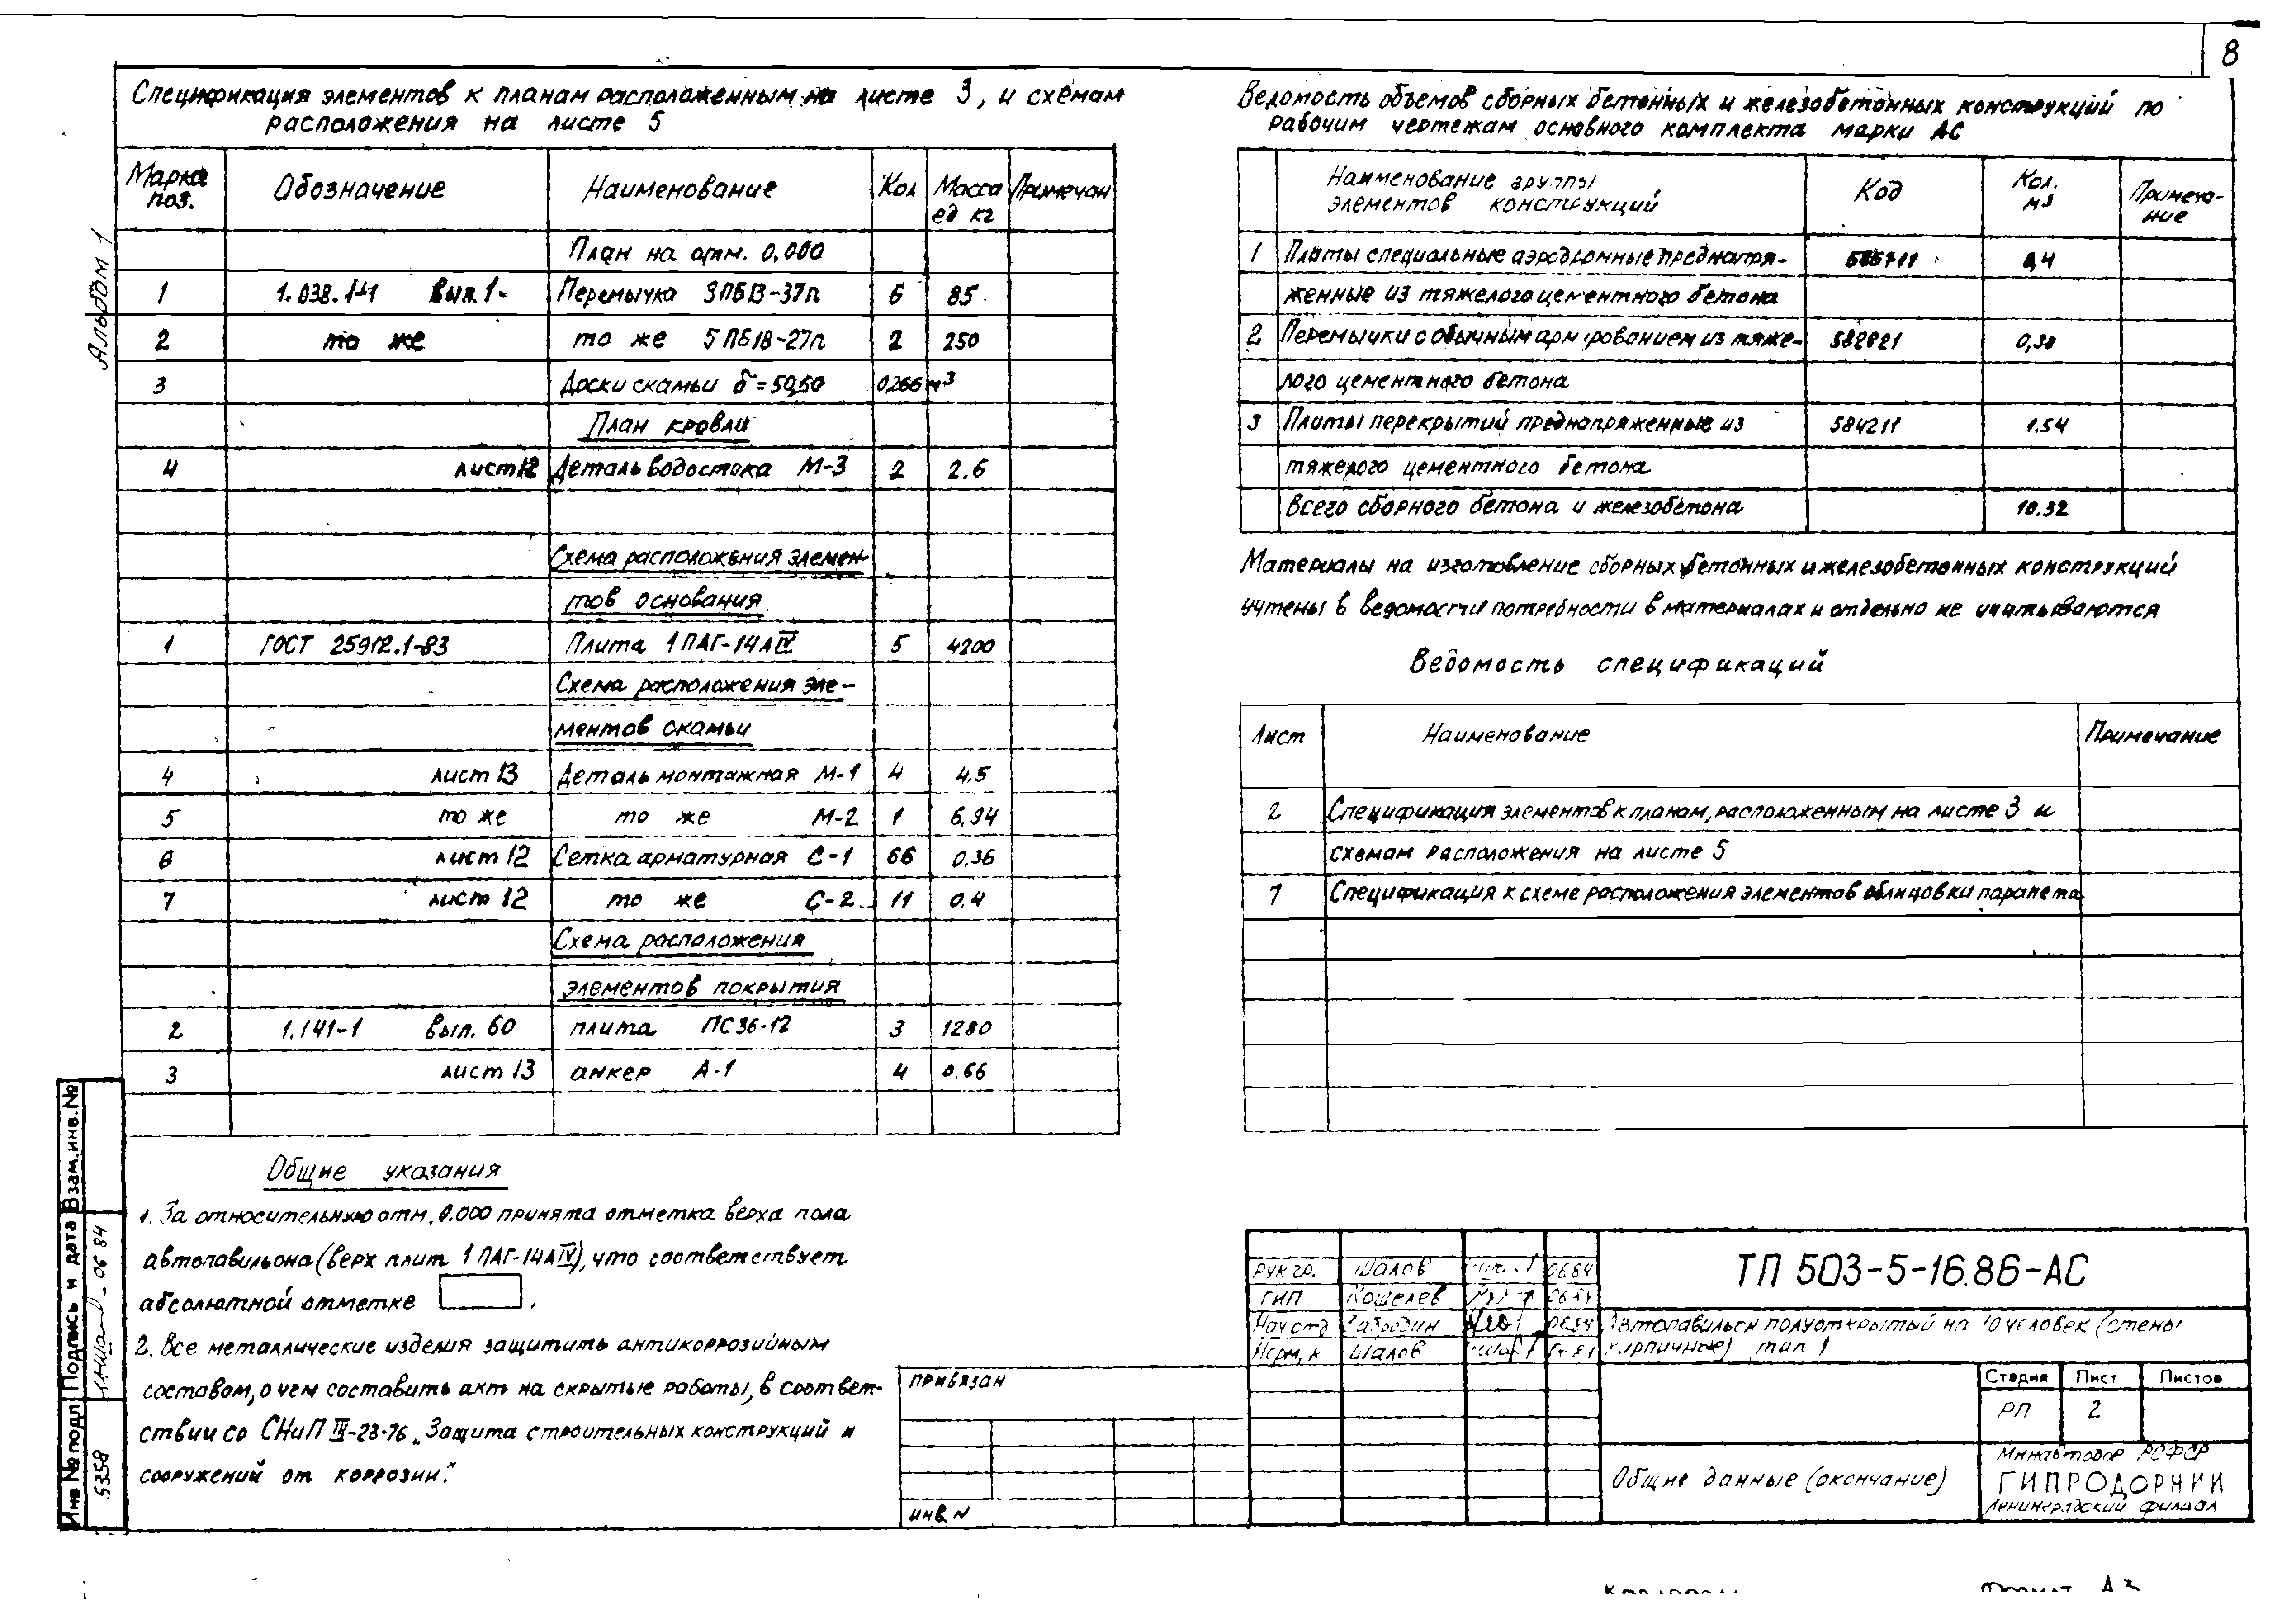 8
Спецификация элементов к планам расположенным на листе 3, и схемам
расположения на листе 5
Марка поз. Обозначение Наименование Кол Масса ед кг Примечан
План на отм. 0.000
1 1.038.1-1 вып.1- Перемычка 3ПБ13-37п 6 85
2 то же то же 5ПБ18-27п 2 250
3 Доски скамьи δ=50,60 0,266 м3
План кровли
4 лист 12 Деталь водостока М-3 2 2.6
Схема расположения элемен-
тов основания
1 ГОСТ 25912.1-83 Плита 1ПАГ-14АIV 5 4200
Схема расположения эле-
ментов скамьи
4 лист 13 Деталь монтажная М-1 4 4.5
5 то же то же М-2 1 6.94
6 лист 12 Сетка арматурная С-1 66 0.36
7 лист 12 то же С-2 11 0.4
Схема расположения
элементов покрытия
2 1.141-1 вып. 60 плита ПС36-12 3 1280
3 лист 13 анкер А-1 4 0.66
Общие указания
1. За относительную отм. 0.000 принята отметка верха пола
автопавильона (верх плит 1ПАГ-14АIV), что соответствует
абсолютной отметке .
2. Все металлические изделия защитить антикоррозийным
составом, о чем составить акт на скрытые работы, в соответ-
ствии со СНиП III-23-76 „Защита строительных конструкций и
сооружений от коррозии."
Ведомость объемов сборных бетонных и железобетонных конструкций по
рабочим чертежам основного комплекта марки АС
Наименование группы элементов конструкций Код Кол. м3 Примеча-ние
1 Плиты специальные аэродромные преднапря-
женные из тяжелого цементного бетона
2 Перемычки с обычным армированием из тяже- 582821 0,38
лого цементного бетона
3 Плиты перекрытий преднапряженные из 584211 1.54
тяжелого цементного бетона
Всего сборного бетона и железобетона 10.32
Материалы на изготовление сборных бетонных и железобетонных конструкций
учтены в ведомости потребности в материалах и отдельно не учитываются
Ведомость спецификаций
Лист Наименование Примечание
2 Спецификация элементов к планам, расположенным на листе 3 и
схемам расположения на листе 5
7 Спецификация к схеме расположения элементов облицовки парапета
Альбом 1
Взам.инв.№
Подпись и дата 06 84
Инв № подл 5358
Привязан
инв. N
Рук гр. Шалов 0684
ГИП Кошелев
Нач отд 0684
Норм. к Шалов
ТП 503-5-16.86-АС
Автопавильон полуоткрытый на 10 человек (стены
кирпичные) тип 1
Стадия Лист Листов
РП 2
Общие данные (окончание)
Минавтодор РСФСР
ГИПРОДОРНИИ
Ленинградский филиал
Формат А3